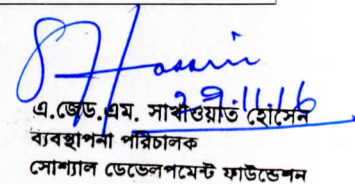 Hossain
29.11.16
এ.জেড.এম. সাখাওয়াত হোসেন
ব্যবস্থাপনা পরিচালক
সোশ্যাল ডেভেলপমেন্ট ফাউন্ডেশন